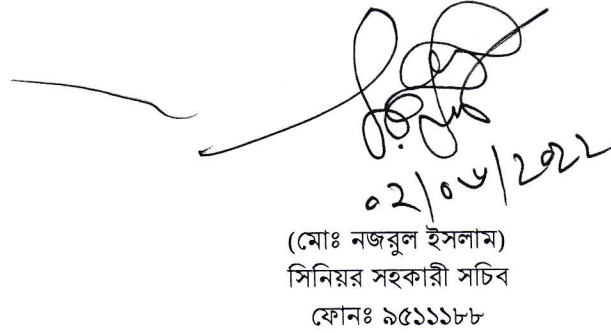 ০২/০৬/২০২২
(মোঃ নজরুল ইসলাম)
সিনিয়র সহকারী সচিব
ফোনঃ ৯৫১১১৮৮